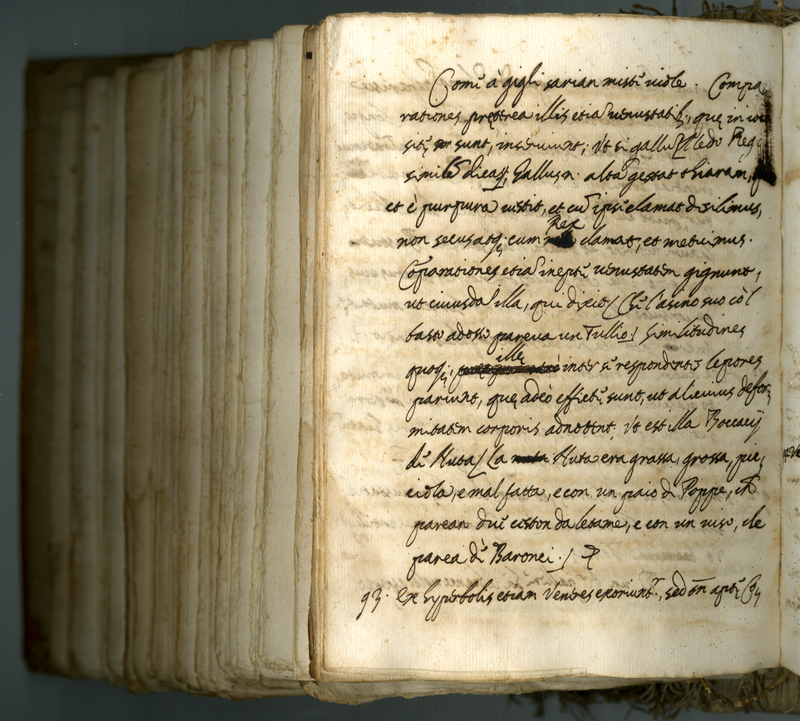 Com'è à gigli sarian misti viole. Compa,
rationes prętrea illis etiā venustatē, quę in io
sitę sunt, inseruiunt; Vt si gallū Regi
similē dicas, Gallus n. alta gestat thiaram,
et è purpura uistit, et cū ipse clamat dissilimus,
non secus atq; cum Rex clamat, et metuimus.
Coparationes etiā inepte venustatem gignunt,
ut cuiusdā illa, qui dixit / Chi l'asino suo còl
basto adosso pareua un Tullio / Similitudines
quoq; illę inter se respondentes lepores
pariunt, quę adeò effictę sunt, ut alicuius defor,
mitatem corporis adnotent, Vt est illa Boccacij
di Nuta / La Nuta era grassa, grossa, pic,
ciola, e mal fatta, e con un paio di Poppe, che
parean due ceston da letame, e con un uiso, che
parea de' Baronci. /
93. Ex hyperbolis etiam Veneres exoriunt,, sed